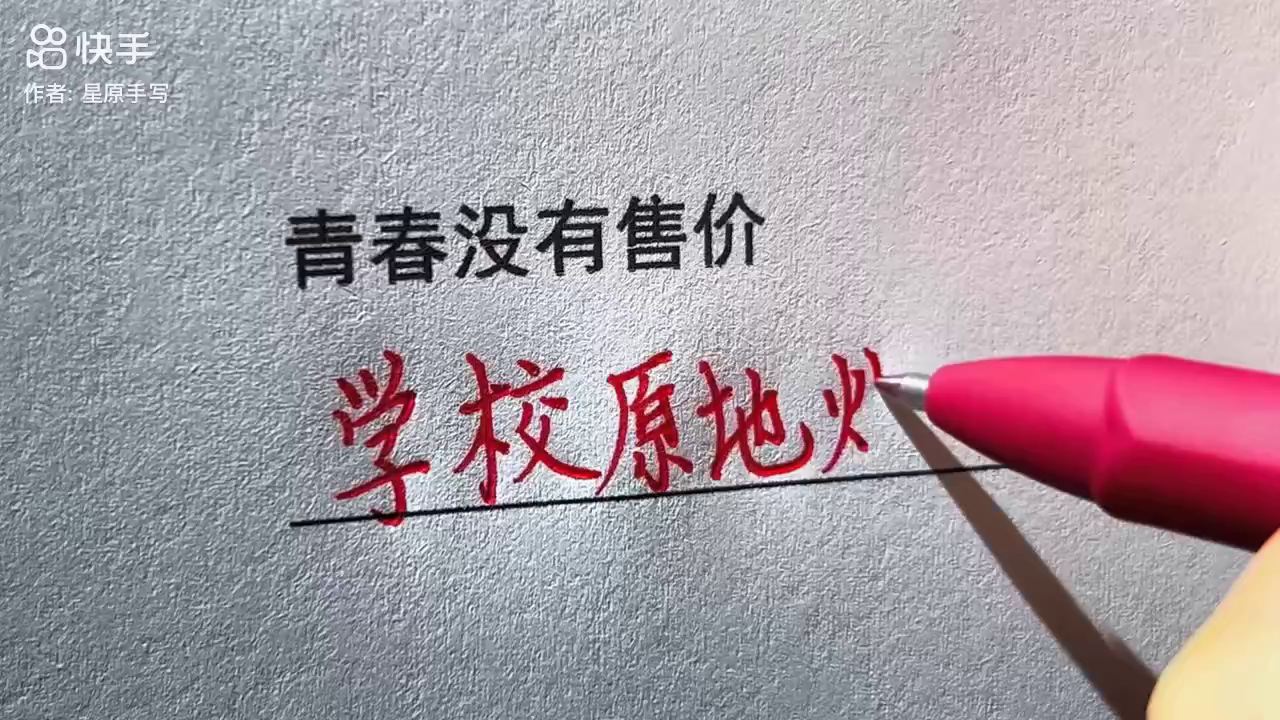 快手
作者: 星原手写
青春没有售价
学校原地